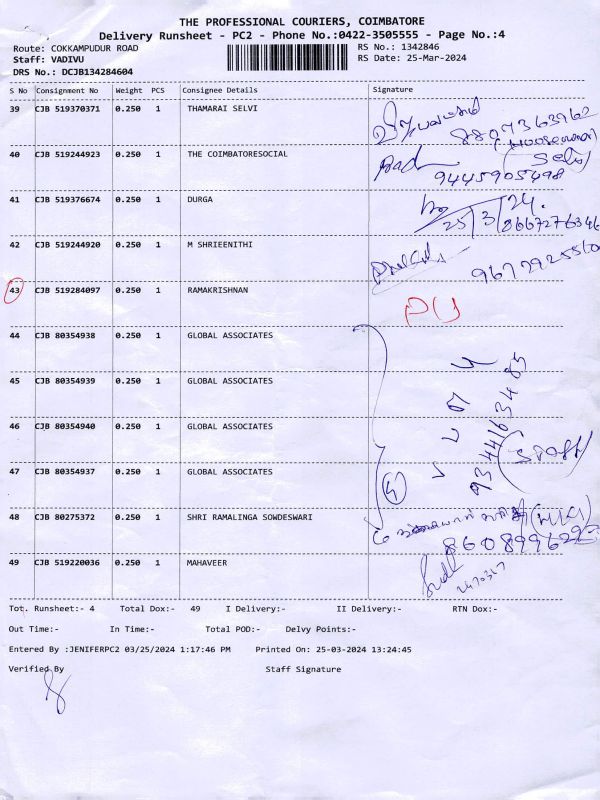 THE PROFESSIONAL COURIERS, COIMBATORE
Delivery Runsheet - PC2 - Phone No.:0422-3505555 - Page No.:4
Route: COKKAMPUDUR ROAD
RS No.: 1342846
Staff: VADIVU
RS Date: 25-Mar-2024
DRS No.: DCJB134284604
S No Consignment No Weight PCS Consignee Details Signature
39 CJB 519370371 0.250 1 THAMARAI SELVI
40 CJB 519244923 0.250 1 THE COIMBATORESOCIAL
9445905498
41 CJB 519376674 0.250 1 DURGA
25/3/24.
8667276346
42 CJB 519244920 0.250 1 M SHRIEENITHI
43 CJB 519284097 0.250 1 RAMAKRISHNAN
44 CJB 80354938 0.250 1 GLOBAL ASSOCIATES
45 CJB 80354939 0.250 1 GLOBAL ASSOCIATES
46 CJB 80354940 0.250 1 GLOBAL ASSOCIATES
47 CJB 80354937 0.250 1 GLOBAL ASSOCIATES
48 CJB 80275372 0.250 1 SHRI RAMALINGA SOWDESWARI
49 CJB 519220036 0.250 1 MAHAVEER
Tot. Runsheet:- 4 Total Dox:- 49 I Delivery:- II Delivery:- RTN Dox:-
Out Time:- In Time:- Total POD:- Delvy Points:-
Entered By :JENIFERPC2 03/25/2024 1:17:46 PM Printed On: 25-03-2024 13:24:45
Verified By Staff Signature